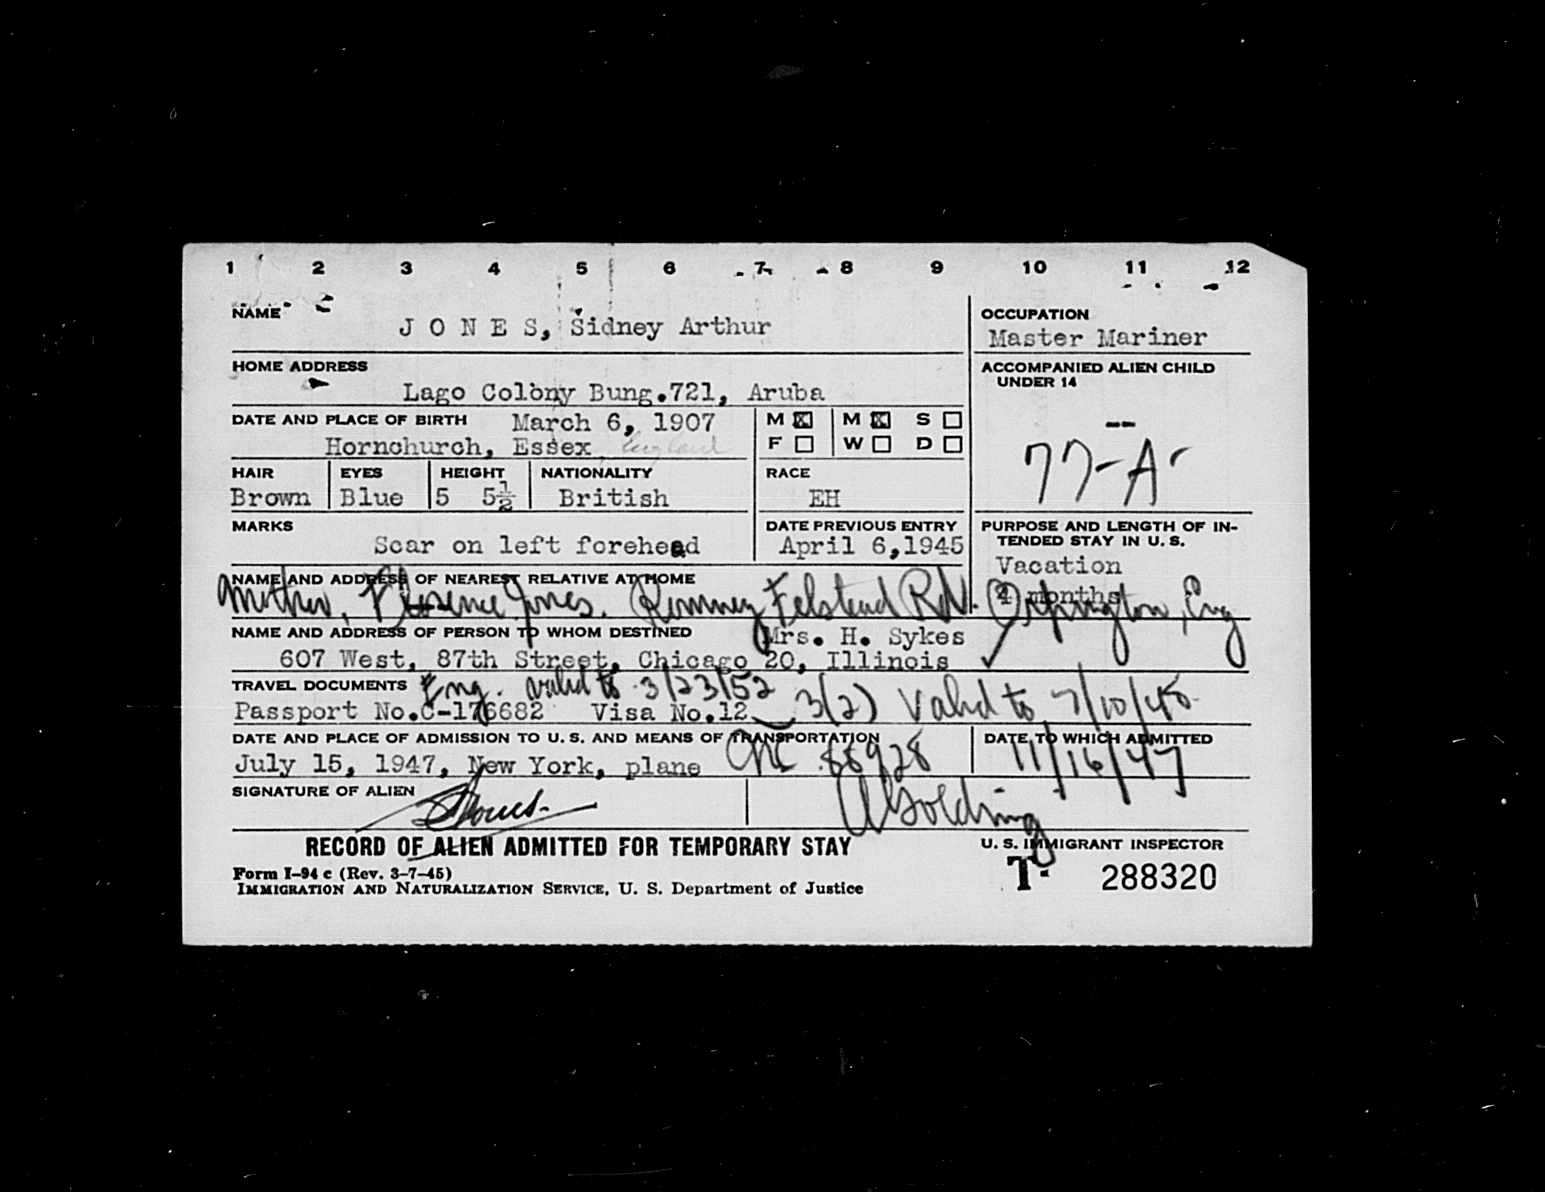 1 2 3 4 5 6 7 8 9 10 11 12
NAME
J O N E S, Sidney Arthur
OCCUPATION
Master Mariner
HOME ADDRESS
Lago Colony Bung.721, Aruba
ACCOMPANIED ALIEN CHILD
UNDER 14
--
77-A-
DATE AND PLACE OF BIRTH March 6, 1907
Hornchurch, Essex, England
M ☒ M ☒ S ☐
F ☐ W ☐ D ☐
HAIR EYES HEIGHT NATIONALITY RACE
Brown Blue 5 5½ British EH
MARKS
Scar on left forehead
DATE PREVIOUS ENTRY
April 6,1945
PURPOSE AND LENGTH OF IN-
TENDED STAY IN U. S.
Vacation
4 months
NAME AND ADDRESS OF NEAREST RELATIVE AT HOME
Mother, Florence Jones. Romney Felstead Rd. Orpington, Eng
NAME AND ADDRESS OF PERSON TO WHOM DESTINED Mrs. H. Sykes
607 West, 87th Street, Chicago 20, Illinois
TRAVEL DOCUMENTS Eng. valid to 3/23/52
Passport No.C-176682 Visa No.12 3(2) Valid to 7/10/48
DATE AND PLACE OF ADMISSION TO U. S. AND MEANS OF TRANSPORTATION
July 15, 1947, New York, plane NC 88928
DATE TO WHICH ADMITTED
11/16/47
SIGNATURE OF ALIEN
SJones
A Golding
RECORD OF ALIEN ADMITTED FOR TEMPORARY STAY
U. S. IMMIGRANT INSPECTOR
Form I-94 c (Rev. 3-7-45)
IMMIGRATION AND NATURALIZATION SERVICE, U. S. Department of Justice
T- 288320